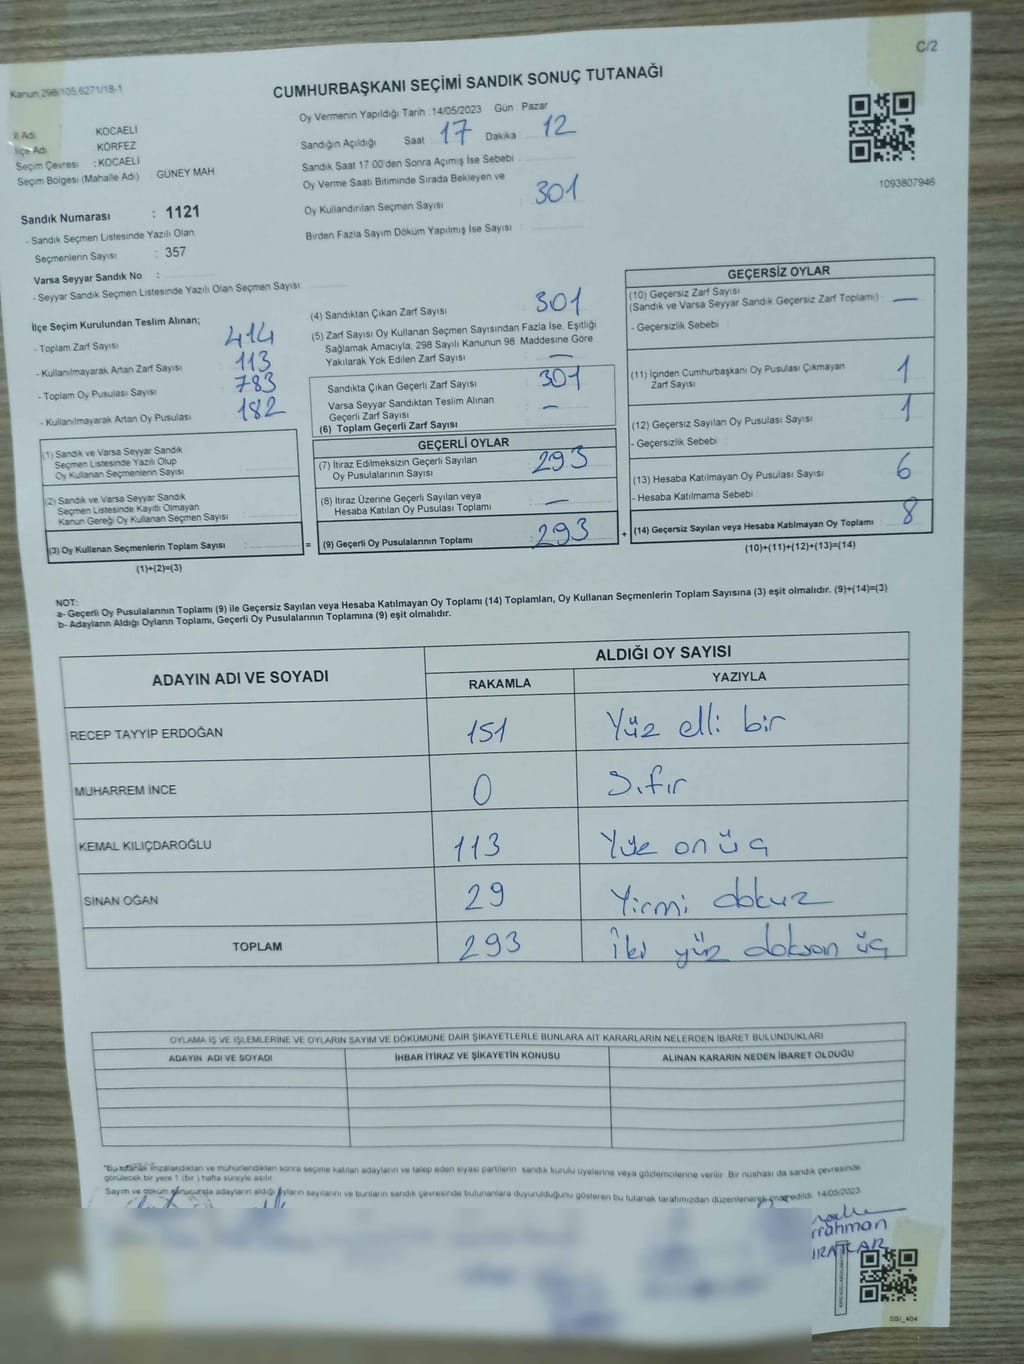 C/2
Kanun,298/105,6271/18-1
CUMHURBAŞKANI SEÇİMİ SANDIK SONUÇ TUTANAĞI
İl Adı KOCAELİ
İlçe Adı KÖRFEZ
Seçim Çevresi : KOCAELİ
Seçim Bölgesi (Mahalle Adı) GÜNEY MAH
Oy Vermenin Yapıldığı Tarih :14/05/2023 Gün : Pazar
Sandığın Açıldığı Saat 17 Dakika 12
Sandık Saat 17:00'den Sonra Açımış İse Sebebi
Oy Verme Saati Bitiminde Sırada Bekleyen ve
Oy Kullandırılan Seçmen Sayısı : 301
Birden Fazla Sayım Döküm Yapılmış İse Sayısı :
1093807946
Sandık Numarası : 1121
- Sandık Seçmen Listesinde Yazılı Olan
Seçmenlerin Sayısı : 357
Varsa Seyyar Sandık No :
- Seyyar Sandık Seçmen Listesinde Yazılı Olan Seçmen Sayısı
İlçe Seçim Kurulundan Teslim Alınan;
- Toplam Zarf Sayısı 414
- Kullanılmayarak Artan Zarf Sayısı 113
- Toplam Oy Pusulası Sayısı 783
- Kullanılmayarak Artan Oy Pusulası 182
(1) Sandık ve Varsa Seyyar Sandık
Seçmen Listesinde Yazılı Olup
Oy Kullanan Seçmenlerin Sayısı
(2) Sandık ve Varsa Seyyar Sandık
Seçmen Listesinde Kayıtlı Olmayan
Kanun Gereği Oy Kullanan Seçmen Sayısı :
(3) Oy Kullanan Seçmenlerin Toplam Sayısı :
(1)+(2)=(3)
=
(4) Sandıktan Çıkan Zarf Sayısı 301
(5) Zarf Sayısı Oy Kullanan Seçmen Sayısından Fazla İse, Eşitliği
Sağlamak Amacıyla, 298 Sayılı Kanunun 98. Maddesine Göre
Yakılarak Yok Edilen Zarf Sayısı —
Sandıkta Çıkan Geçerli Zarf Sayısı : 301
Varsa Seyyar Sandıktan Teslim Alınan
Geçerli Zarf Sayısı —
(6) Toplam Geçerli Zarf Sayısı
GEÇERLİ OYLAR
(7) İtiraz Edilmeksizin Geçerli Sayılan
Oy Pusulalarının Sayısı 293
(8) İtiraz Üzerine Geçerli Sayılan veya
Hesaba Katılan Oy Pusulası Toplamı —
(9) Geçerli Oy Pusulalarının Toplamı : 293
+
GEÇERSİZ OYLAR
(10) Geçersiz Zarf Sayısı
(Sandık ve Varsa Seyyar Sandık Geçersiz Zarf Toplamı) : —
- Geçersizlik Sebebi
(11) İçinden Cumhurbaşkanı Oy Pusulası Çıkmayan
Zarf Sayısı 1
(12) Geçersiz Sayılan Oy Pusulası Sayısı 1
- Geçersizlik Sebebi
(13) Hesaba Katılmayan Oy Pusulası Sayısı 6
- Hesaba Katılmama Sebebi
(14) Geçersiz Sayılan veya Hesaba Katılmayan Oy Toplamı 8
(10)+(11)+(12)+(13)=(14)
NOT:
a- Geçerli Oy Pusulalarının Toplamı (9) ile Geçersiz Sayılan veya Hesaba Katılmayan Oy Toplamı (14) Toplamları, Oy Kullanan Seçmenlerin Toplam Sayısına (3) eşit olmalıdır. (9)+(14)=(3)
b- Adayların Aldığı Oyların Toplamı, Geçerli Oy Pusulalarının Toplamına (9) eşit olmalıdır.
ADAYIN ADI VE SOYADI ALDIĞI OY SAYISI
RAKAMLA YAZIYLA
RECEP TAYYİP ERDOĞAN 151 Yüz elli bir
MUHARREM İNCE 0 Sıfır
KEMAL KILIÇDAROĞLU 113 Yüz on üç
SİNAN OĞAN 29 Yirmi dokuz
TOPLAM 293 İki yüz doksan üç
OYLAMA İŞ VE İŞLEMLERİNE VE OYLARIN SAYIM VE DÖKÜMÜNE DAİR ŞİKAYETLERLE BUNLARA AİT KARARLARIN NELERDEN İBARET BULUNDUKLARI
ADAYIN ADI VE SOYADI İHBAR İTİRAZ VE ŞİKAYETİN KONUSU ALINAN KARARIN NEDEN İBARET OLDUĞU
*Bu tutanak imzalandıktan ve mühürlendikten sonra seçime katılan adayların ve talep eden siyasi partilerin sandık kurulu üyelerine veya gözlemcilerine verilir. Bir nüshası da sandık çevresinde
görülecek bir yere 1 (bir) hafta süreyle asılır.
Sayım ve döküm sonucunda adayların aldığı oyların sayılarını ve bunların sandık çevresinde bulunanlara duyurulduğunu gösteren bu tutanak tarafımızdan düzenlenerek imza edildi. 14/05/2023
rrahman